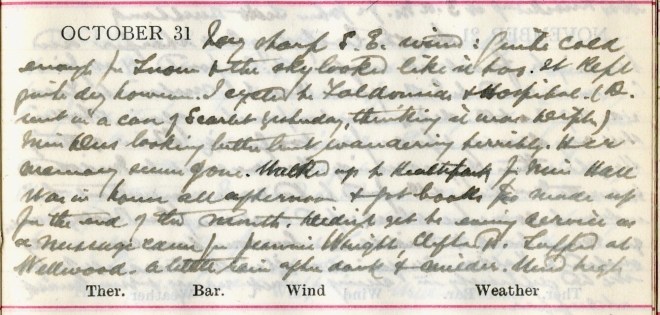 OCTOBER 31 Day sharp S. E. wind: Quite cold
enough for Snow & the sky looked like it too. It kept
quite dry however. I cycled to & Hospital. (D.
sent in a case of Scarlet yesterday, thinking it was Diphth)
Miss looking better but wandering terribly. Her
memory seems gone. Walked up to Heathpark for Miss Hall
Was in house all afternoon & got books &c made up
for the end of the month. Didn't get to evening service as
a message came for Jeannie Wright, Clifton Rd. Supped at
Wellwood. A little rain after dark & milder. Wind high
Ther. Bar. Wind Weather